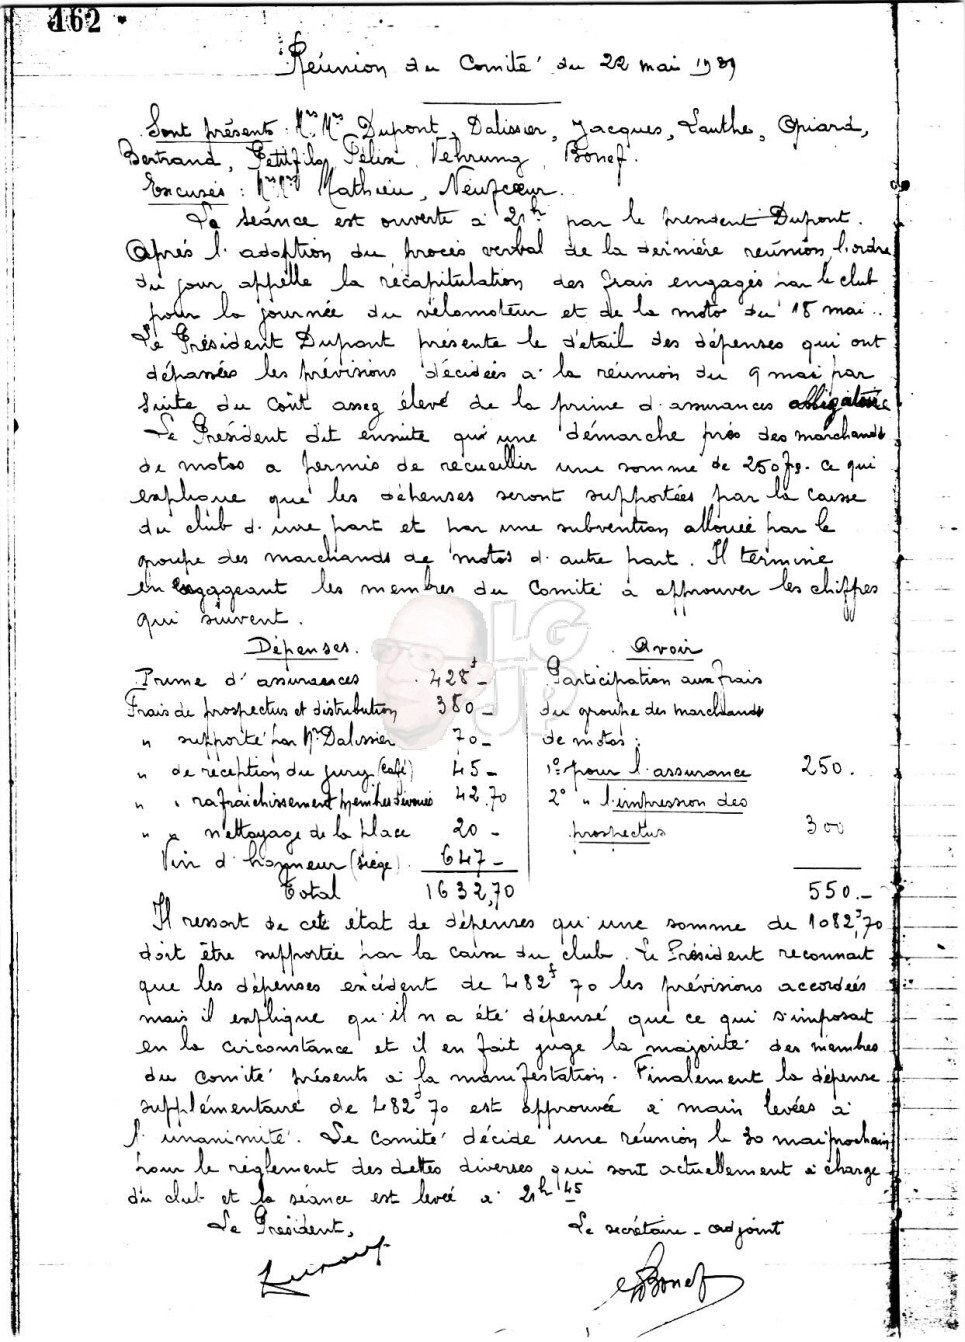 162
Réunion du Comité du 22 mai 1939
Sont présents : Mrs Mrs Dupont, Dalissier, Jacques, Lauthe, Opiard,
Bertrand, Petitfils, Félix, Vehrung, Bonef.
Excusés : Mrs Mrs Mathieu, Neufcoeur.
La séance est ouverte à 21h par le president Dupont.
Après l'adoption du procès verbal de la dernière reunion, l'ordre
du jour appelle la récapitulation des frais engagés par le club
pour la journée du vélomoteur et de la moto du 18 mai..
Le Président Dupont présente le détail des dépenses qui ont
dépassées les prévisions décidées à la réunion du 9 mai par
suite du coût assez élevé de la prime d'assurances obligatoire
Le Président dit ensuite qu'une démarche près des marchands
de motos a permis de recueillir une somme de 250 frs. ce qui
explique que les dépenses seront supportées par la caisse
du club d'une part et par une subvention allouée par le
groupe des marchands de motos d'autre part. Il termine
en engageant les membres du Comité à approuver les chiffres
qui suivent.
Dépenses. Avoir
Prime d'assurances 428f - Participation aux frais
Frais de prospectus et distribution 380 - du groupe des marchands
" supporté par Mr Dalissier 70 - de motos :
" de réception du jury (café) 45 - 1° pour l'assurance 250.
" " rafraichissement membres dévoués 42.70 2° " l'impression des
" " nettoyage de la place 20 - prospectus 300
Vin d'honneur (siège) 647 -
Total 1632,70 550.-
Il ressort de cet état de dépenses qu'une somme de 1082f,70
doit être supportée par la caisse du club. Le Président reconnait
que les dépenses excédent de 482f 70 les prévisions accordées
mais il explique qu'il n'a été dépensé que ce qui s'imposait
en la circonstance et il en fait juge la majorité des membres
du comité présents à la manifestation. Finalement la dépense
supplémentaire de 482f 70 est approuvée à main levées à
l'unanimité. Le Comité décide une réunion le 30 mai prochain
pour le règlement des dettes diverses qui sont actuellement à charge
du club et la séance est levée à 21h 45
Le President, Le secrétaire - adjoint
Bonef
LG
JP